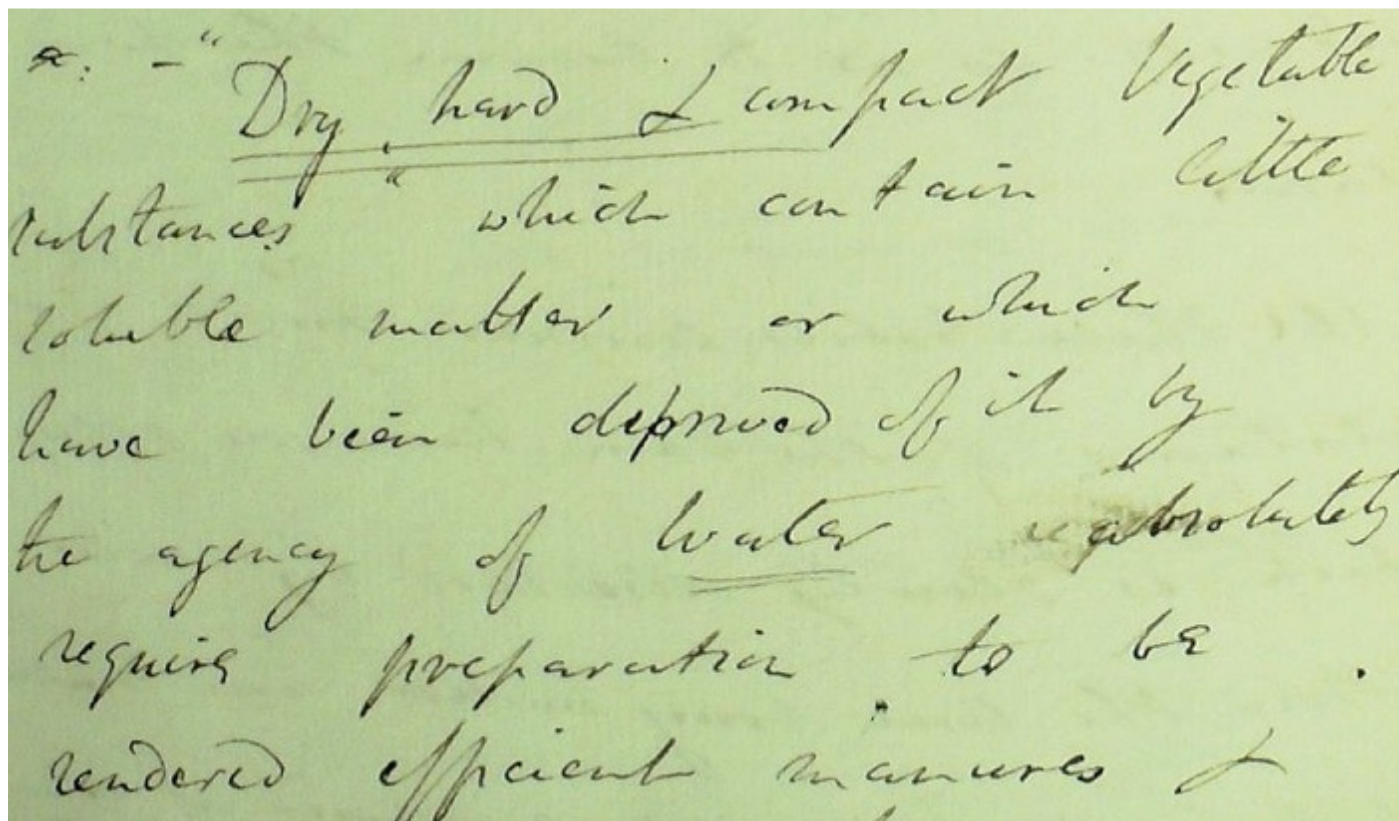 x: - "Dry, hard & compact Vegetable
substances" which contain little
soluble matter or which
have been deprived of it by
the agency of Water absolutely
require preparation to be .
rendered efficient manures &